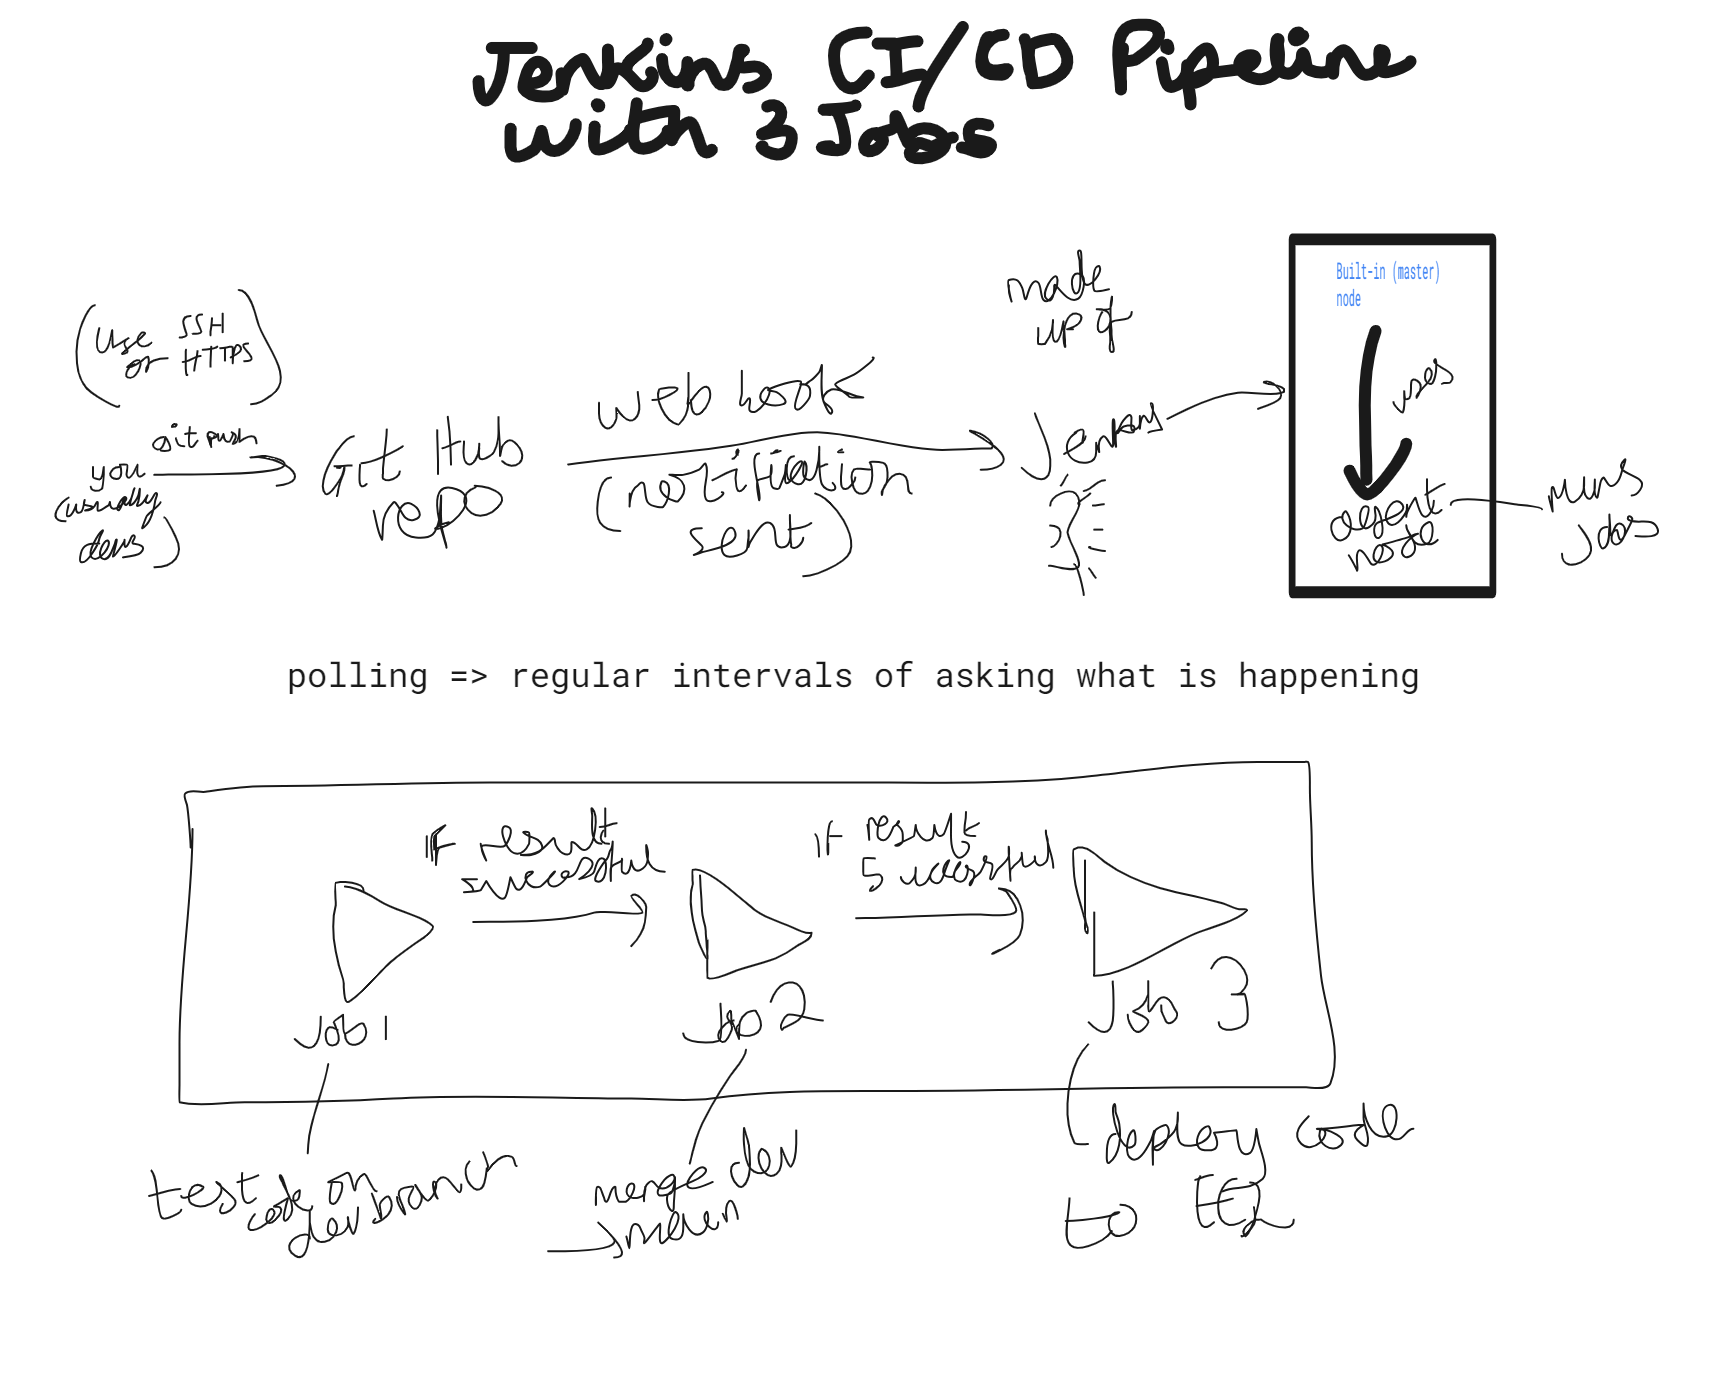 Jenkins CI/CD Pipeline
with 3 Jobs
(Use SSH
or HTTPS)
git push
you
(usually
devs)
GitHub
repo
web hook
(notification
sent)
made
up of
Jenkins
Built-in (master)
node
uses
agent
node
runs
jobs
polling => regular intervals of asking what is happening
if result
successful
if result
successful
Job 1
Job 2
Job 3
test
code on
dev branch
merge dev
main
deploy code
to EC2